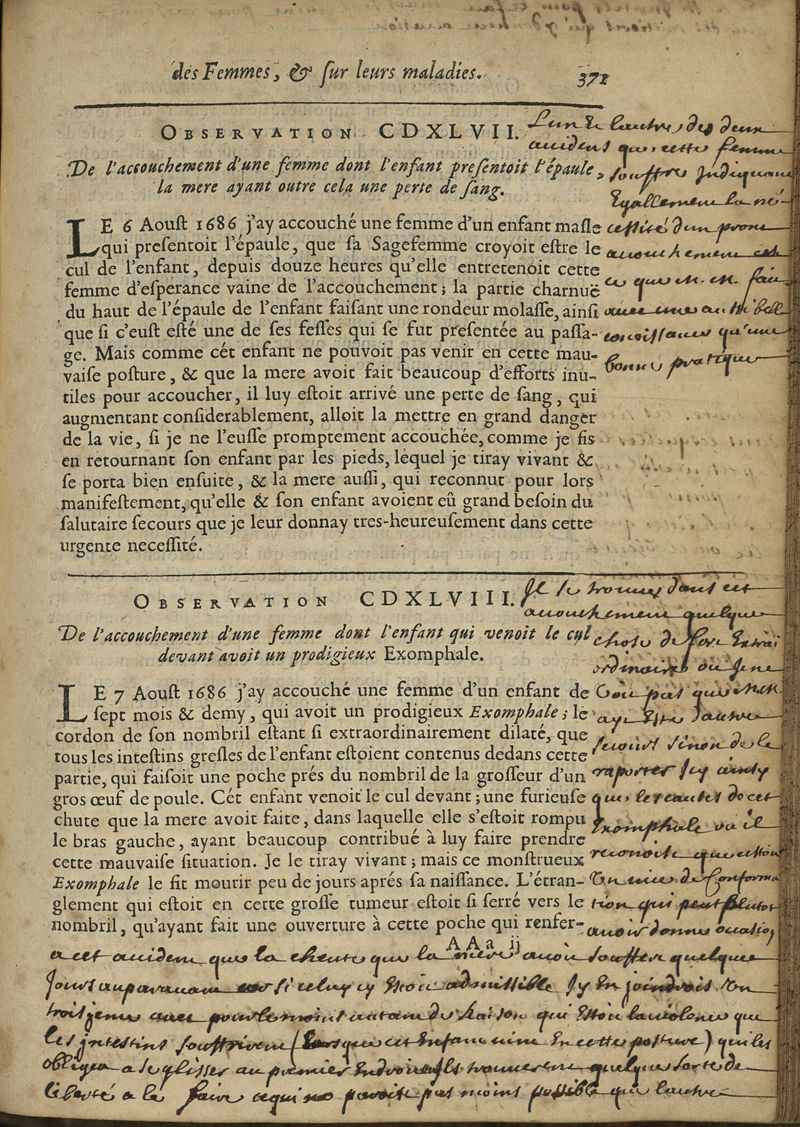 des Femmes, & sur leurs maladies. 371
OBSERVATION CDXLVII.
De l'accouchement d'une femme dont l'enfant presentoit l'épaule,
la mere ayant outre cela une perte de sang.
LE 6 Aoust 1686 j'ay accouché une femme d'un enfant masle
qui presentoit l'épaule, que sa Sagefemme croyoit estre le
cul de l'enfant, depuis douze heures qu'elle entretenoit cette
femme d'esperance vaine de l'accouchement; la partie charnuë
du haut de l'épaule de l'enfant faisant une rondeur molasse, ainsi
que si c'eust esté une de ses fesses qui se fut presentée au passa-
ge. Mais comme cét enfant ne pouvoit pas venir en cette mau-
vaise posture, & que la mere avoit fait beaucoup d'efforts inu-
tiles pour accoucher, il luy estoit arrivé une perte de sang, qui
augmentant considerablement, alloit la mettre en grand danger
de la vie, si je ne l'eusse promptement accouchée, comme je fis
en retournant son enfant par les pieds, lequel je tiray vivant &
se porta bien ensuite, & la mere aussi, qui reconnut pour lors
manifestement, qu'elle & son enfant avoient eû grand besoin du
salutaire secours que je leur donnay tres-heureusement dans cette
urgente necessité.
L'un & l'autre des deux
accident que cette femme
souffre Indiquant
Egallement la né
cessité d'un promt
accouchement et
ce que m. m. fait
avec une au
conoissance qu'une
bonne pratique
OBSERVATION CDXLVIII.
De l'accouchement d'une femme dont l'enfant qui venoit le cul
devant avoit un prodigieux Exomphale.
LE 7 Aoust 1686 j'ay accouché une femme d'un enfant de
sept mois & demy, qui avoit un prodigieux Exomphale; le
cordon de son nombril estant si extraordinairement dilaté, que
tous les intestins gresles de l'enfant estoient contenus dedans cette
partie, qui faisoit une poche prés du nombril de la grosseur d'un
gros œuf de poule. Cét enfant venoit le cul devant; une furieuse
chute que la mere avoit faite, dans laquelle elle s'estoit rompu
le bras gauche, ayant beaucoup contribué à luy faire prendre
cette mauvaise situation. Je le tiray vivant; mais ce monstrueux
Exomphale le fit mourir peu de jours aprés sa naissance. L'étran-
glement qui estoit en cette grosse tumeur estoit si serré vers le
nombril, qu'ayant fait une ouverture à cette poche qui renfer-
AAa ij
Je trouve dans cet
accouchement quelque
chose de fort Extra
ordinaire ou Je ne
voit pas que m m
ay Este d'autre
secours sinon de le
raporter Icy
que les causes de cet
Exomphale
reconoit que cette
vice de Conforma
tion qui peut plutot
avoir donné ocation
a cet accident que la cheute que la mere avoit souffer quelque
Jours auparavant si celuy cy Etoit admissible J'y En joindrois Un
troisieme avec pour le moins autant de Raison qui Estoit la violence que
les jntestins souffrirent (lorsque cet Enfant vint En cette posture) qui les
obligea a se glisser au premier Endroit trouverent quelque sorte de
liberté a le faire ce qui ne paroit pas moins possible que l'autre